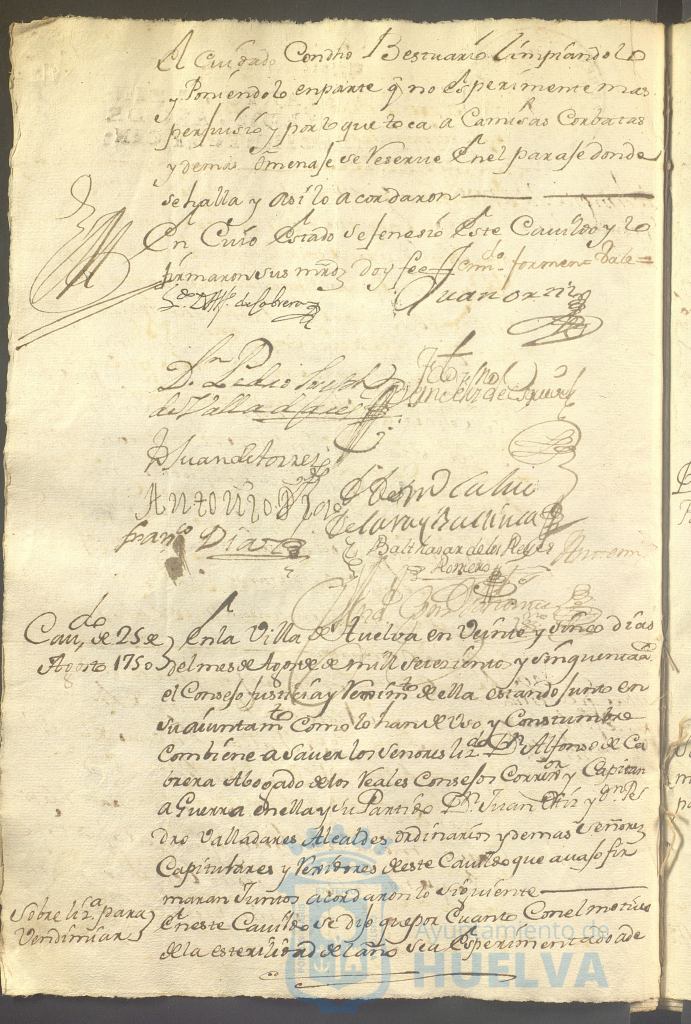 el Cuidado Condho Bestuario limpiandolo
y Poniendolo enparte q no esperimente mas
perjuisio y porlo que toca a Camisas Corbatas
y demas Omenaje se Reserve enel paraje donde
se halla y asilo acordaron
En Cuio estado sefenesio este Cavildo y lo
firmaron sus mrds doy fee
Juan Ortiz
Dn Pedro Joseph
de Valladares
D Juan de Torres
Antonio
franco Diaz
de laray
Balthasar de los Reyes
Romero
Cavdo de 25 de
Agosto 1750
enla Villa de Huelva en Veinte y sinco dias
del mes de Agosto de mill setezientos y sinquenta as
el Consejo Justicia y Rexximto de ella estando junto en
su aiuntamto como lo han de Uso y Constumbre
combiene a Saver los Señores lizdo Dn Alfonso de Ca
brera Abogado delos Reales Consejos Correxor y Capitan
a Guerra en ella y su Partido Dn Juan Ortiz y Dn Pe
dro Valladares Alcaldes ordinarios y demas Señores
Capitulares y Rexidores deste Cavildo que avajo fir
maran Juntos acordaron lo siguiente
Sobre liza para
Vendimiar
en este Cavildo se dio que por Cuanto Con el motivo
de la esterilidad del año se a esperimentado
Ayuntamiento de
HUELVA